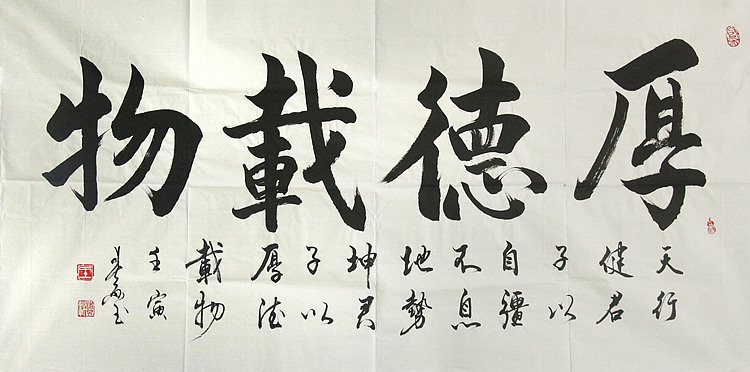 厚德載物
天行
健君
子以
自彊
不息
地勢
坤君
子以
厚德
載物
壬寅